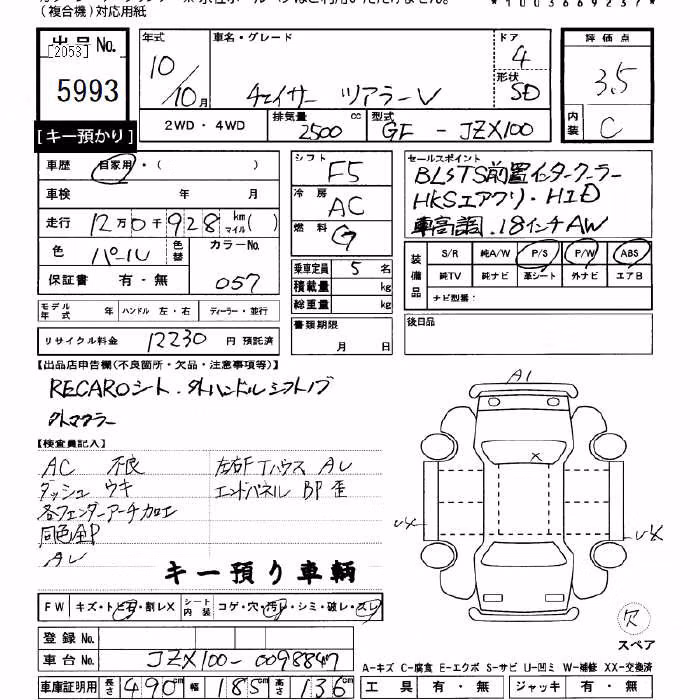 (複合機)対応用紙
*1003669237*
出品 No.
[2053]
5993
[キー預かり]
年式
10/10月
車名・グレード
チェイサー ツアラーV
ドア
4
形状
SD
評価点
3.5
内装
C
2WD・4WD
排気量
2500 cc
型式
GF - JZX100
車歴
自家用・( )
車検 年 月
走行
12万0千928 km マイル( )
色
パール
色替
カラーNo.
057
保証書 有・無
シフト
F5
冷房
AC
燃料
G
乗車定員 5 名
積載量 kg
総重量 kg
セールスポイント
BLSTS前置インタークーラー
HKSエアクリ・HID
車高調.18インチAW
装備品
S/R 純A/W P/S P/W ABS
純TV 純ナビ 革シート 外ナビ エアB
ナビ型番:
モデル年式 年 ハンドル 左・右 ディーラー・並行
リサイクル料金 12230 円 預託済
書類期限
月 日
後日品
【出品店申告欄(不良箇所・欠品・注意事項等)】
RECAROシート.外ハンドルシフトノブ
外マフラー
【検査員記入】
AC 不良
ダッシュ ウキ
各フェンダーアーチ加工
同色全P
AU
左右FTハウス AU
エンドパネル BP 歪
キー預り車輌
A1
X
UX
UX
欠
スペア
FW キズ・トビ石・割レX
シート内装 コゲ・穴・汚レ・シミ・破レ・スレ
登録 No.
車台 No. JZX100-0098847
A-キズ C-腐食 E-エクボ S-サビ U-凹ミ W-補修 XX-交換済
車庫証明用 長さ 490 cm 幅 185 cm 高さ 136 cm
工具 有・無 ジャッキ 有・無